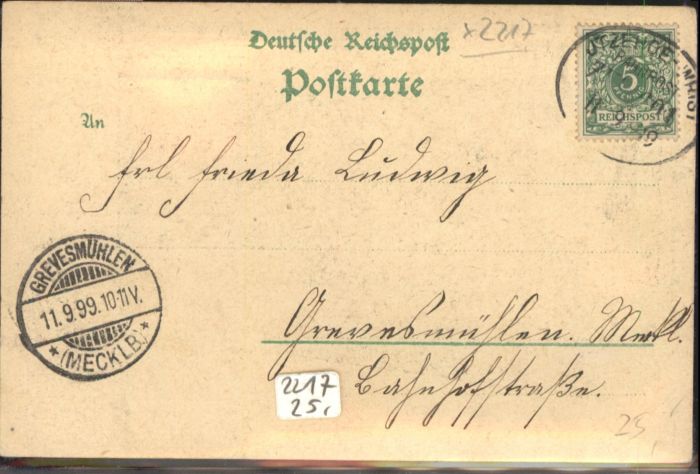 x2217
Deutsche Reichspost
Postkarte
5
REICHSPOST
An
Frl Frieda Ludwig
GREVESMÜHLEN
11.9.99.10-11V.
* (MECKLB.) *
Grevesmühlen. Meckl.
Bahnhofstraße.
2217
25,
25